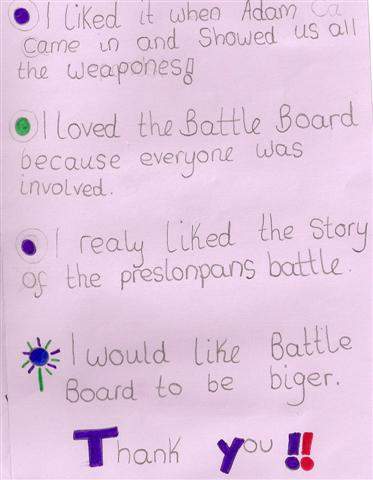 I liked it when Adam Ca
came in and Showed us all
the weapones!
I loved the Battle Board
because everyone was
involved.
I realy liked the Story
of the preslonpans battle.
I would like Battle
Board to be biger.
Thank you!!